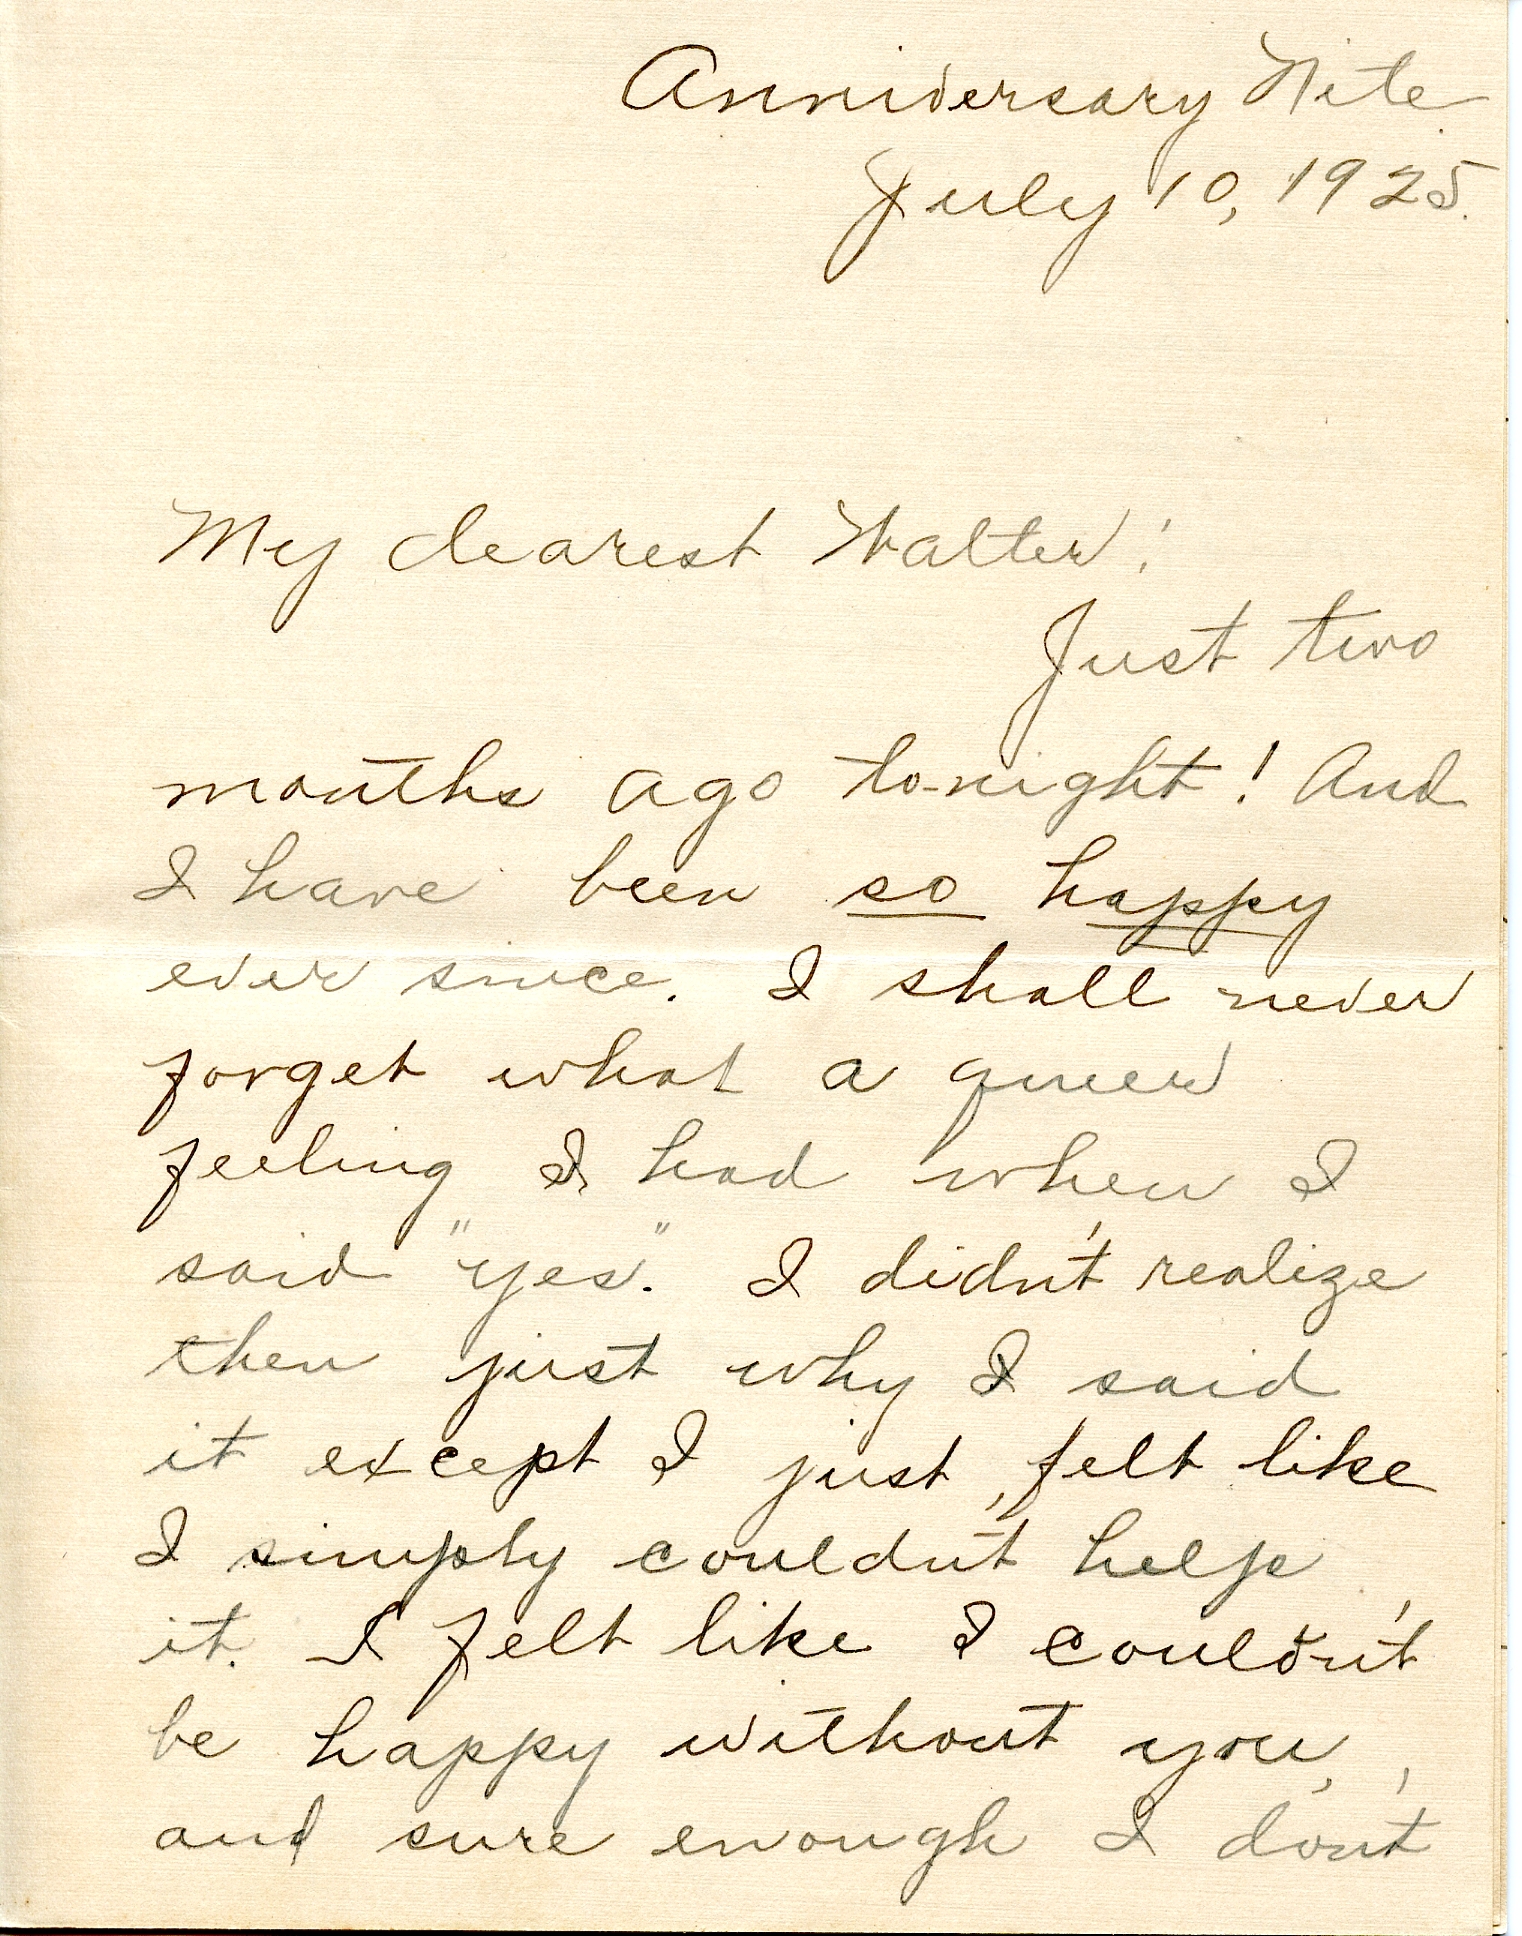 Anniversary Nite.
July 10, 1925.
My dearest Walter:
Just two
months ago to-night! And
I have been so happy
ever since. I shall never
forget what a queer
feeling I had when I
said "yes". I didn't realize
then just why I said
it except I just felt like
I simply couldn't help
it. I felt like I couldn't
be happy without you,
and sure enough I don't